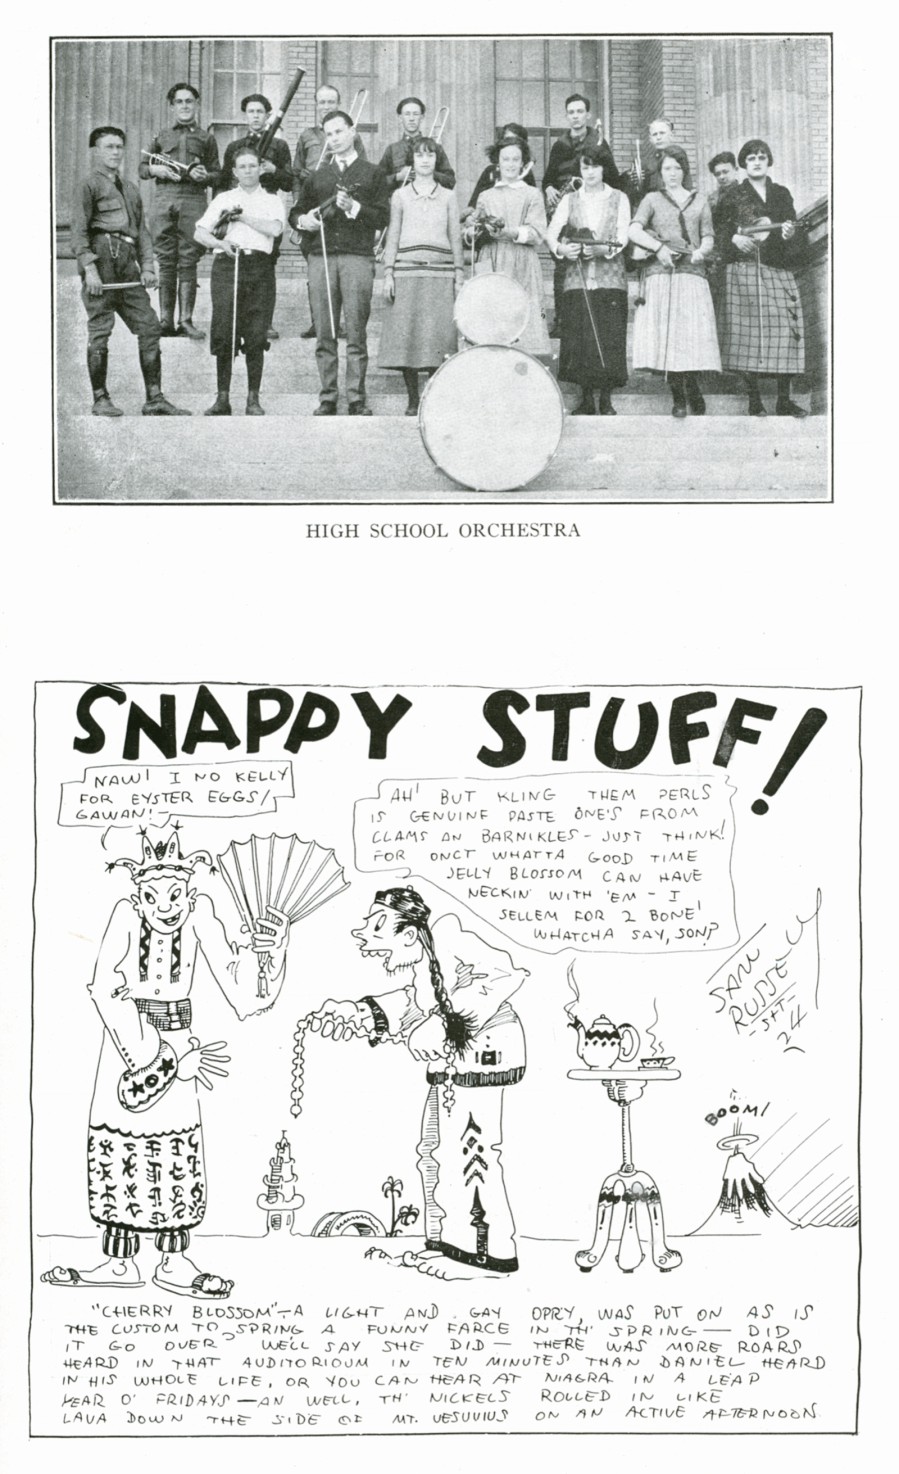 HIGH SCHOOL ORCHESTRA
SNAPPY STUFF!
NAW! I NO KELLY
FOR EYSTER EGGS!
GAWAN!
AH! BUT KLING THEM PERLS
IS GENUINE PASTE ONE'S FROM
CLAMS AN BARNIKLES - JUST THINK!
FOR ONCT WHATTA GOOD TIME
JELLY BLOSSOM CAN HAVE
NECKIN' WITH 'EM - I
SELLEM FOR 2 BONE!
WHATCHA SAY, SON?
SAM
RUSSELL
24
BOOM!
"CHERRY BLOSSOM"—A LIGHT AND GAY OPRY, WAS PUT ON AS IS
THE CUSTOM TO SPRING A FUNNY FARCE IN TH' SPRING — DID
IT GO OVER? WE'LL SAY SHE DID — THERE WAS MORE ROARS
HEARD IN THAT AUDITORIOUM IN TEN MINUTES THAN DANIEL HEARD
IN HIS WHOLE LIFE, OR YOU CAN HEAR AT NIAGRA IN A LEAP
YEAR O' FRIDAYS — AN WELL, TH' NICKELS ROLLED IN LIKE
LAVA DOWN THE SIDE OF MT. VESUVIUS ON AN ACTIVE AFTERNOON